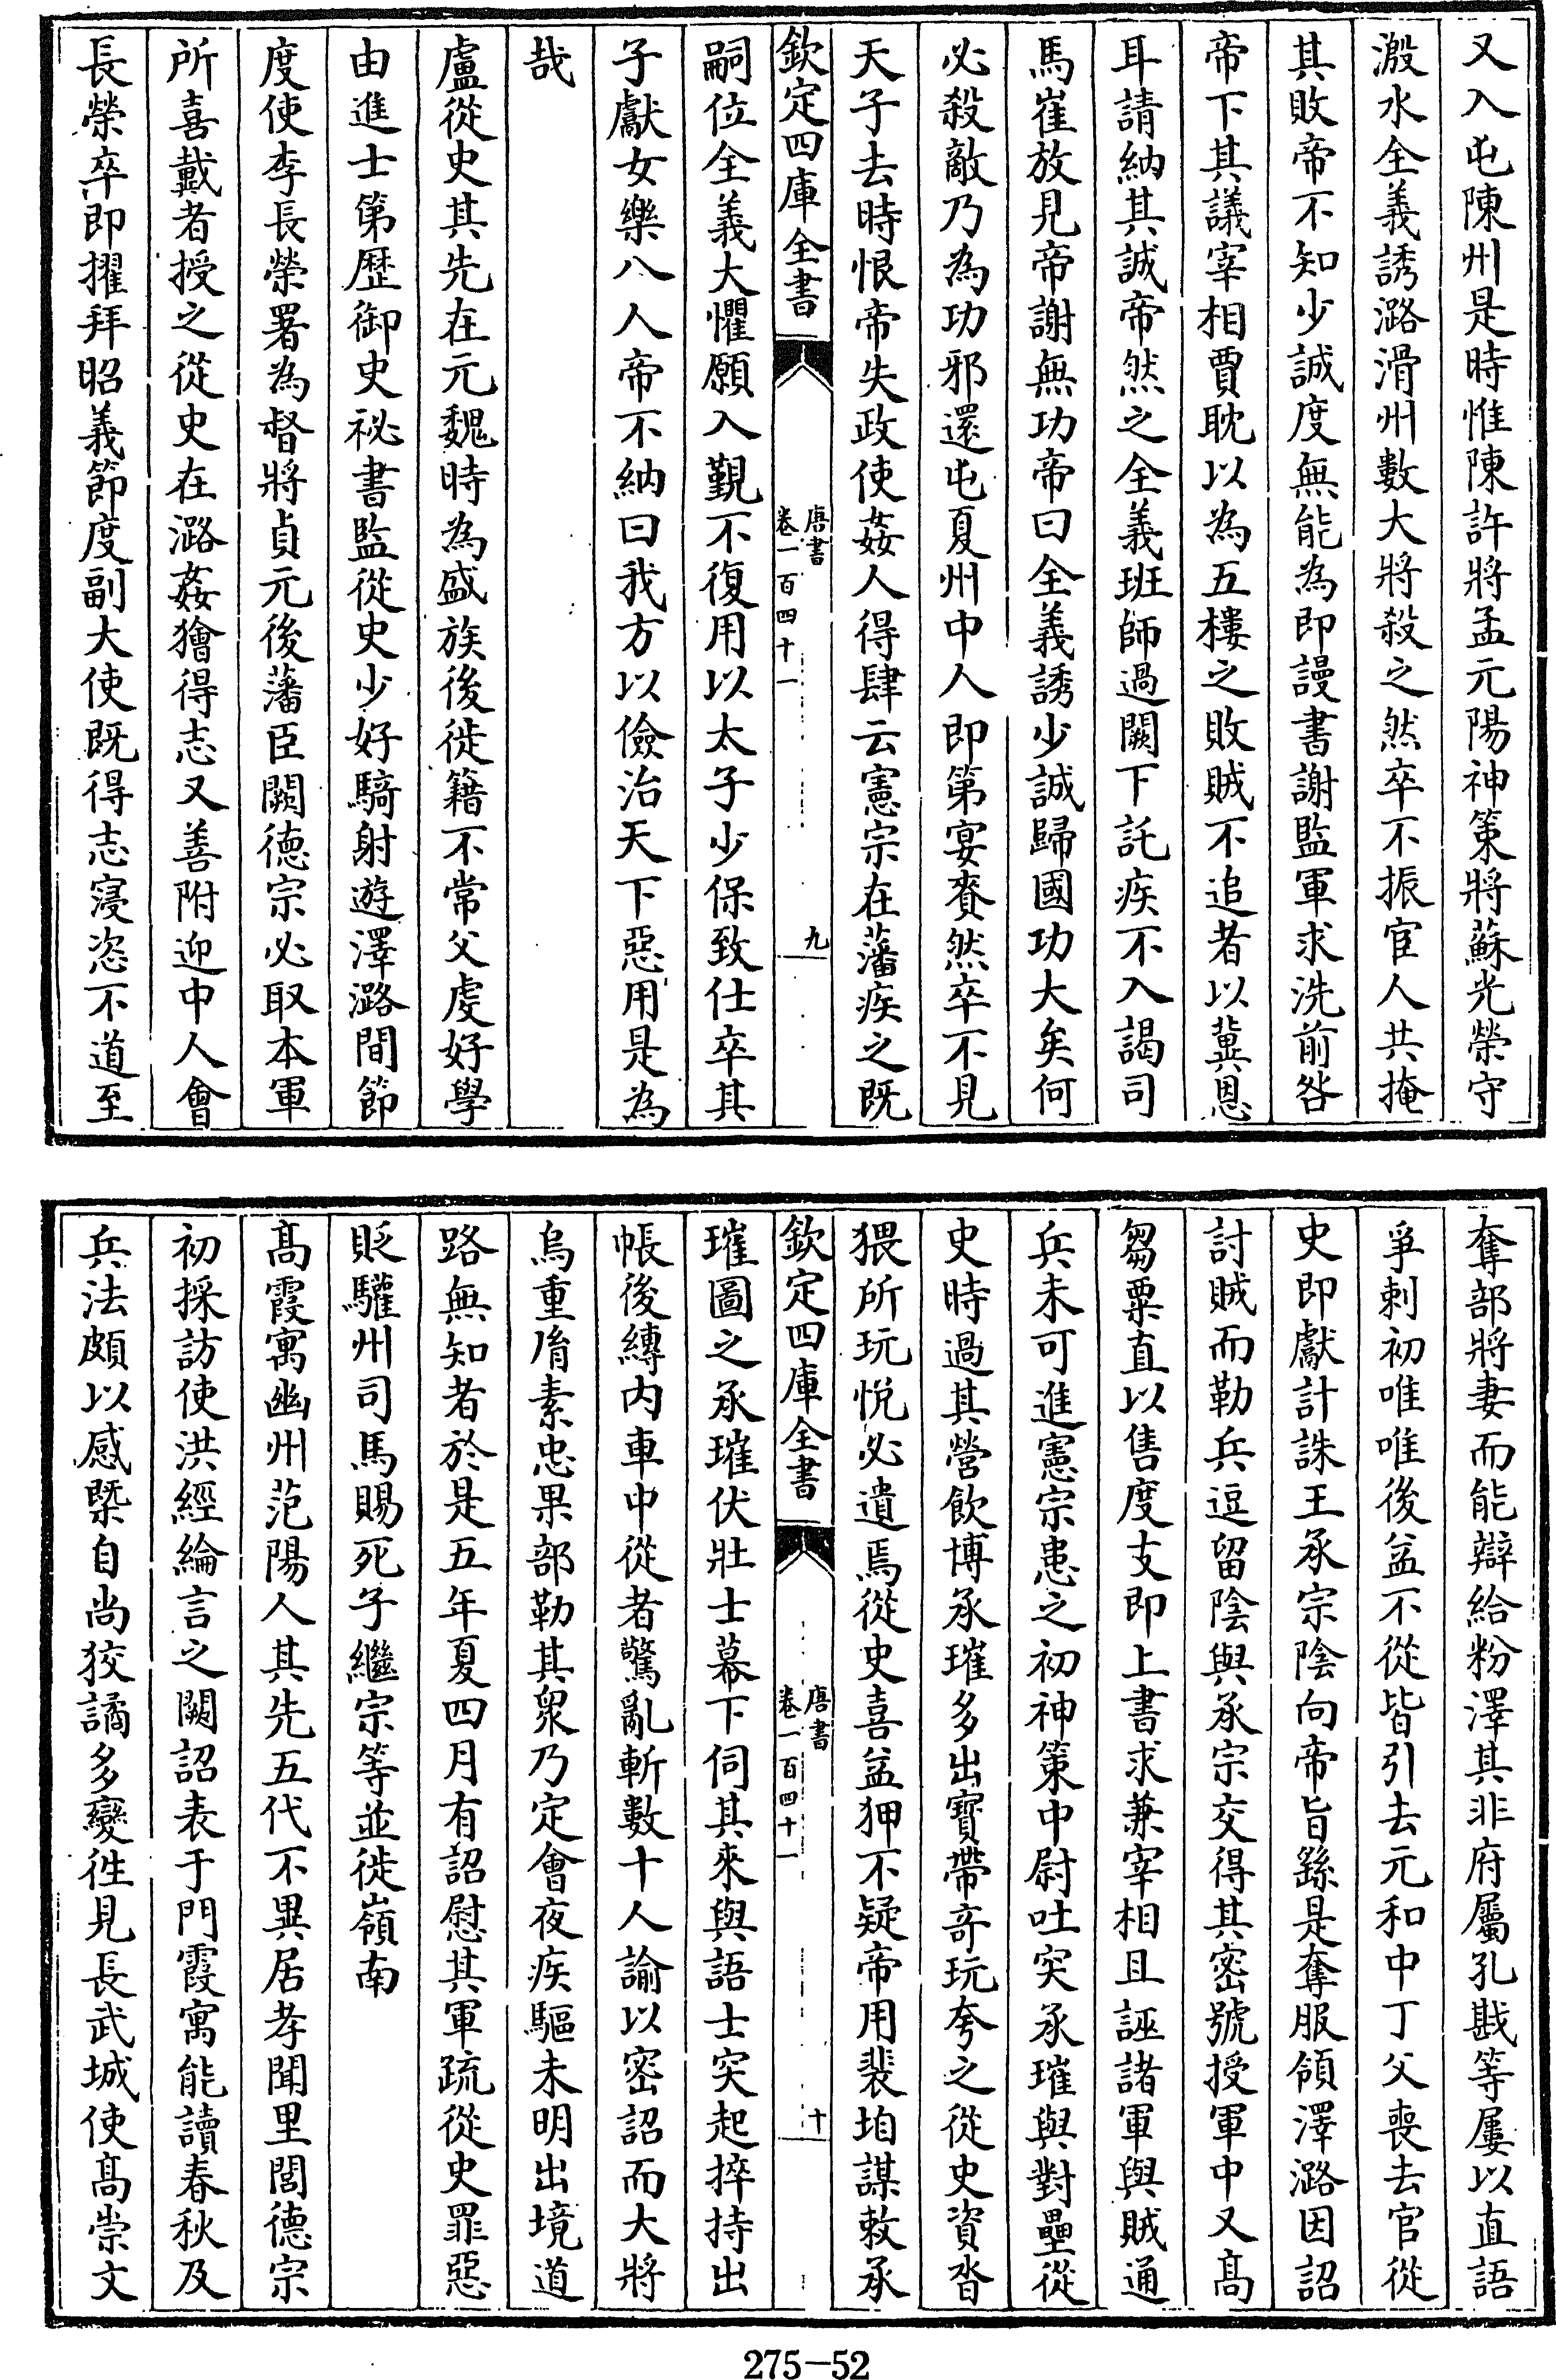 又入屯陳州是時惟陳許將孟元陽神策將蘇光榮守
溵水全義誘潞滑州數大將殺之然卒不振宦人共掩
其敗帝不知少誠度無能為即謾書謝監軍求洗前咎
帝下其議宰相賈耽以為五樓之敗賊不追者以冀恩
耳請納其誠帝然之全義班師過闕下託疾不入謁司
馬崔放見帝謝無功帝曰全義誘少誠歸國功大矣何
必殺敵乃為功邪還屯夏州中人即第宴賚然卒不見
天子去時恨帝失政使姦人得肆云憲宗在藩疾之既
欽定四庫全書
唐書
卷一百四十一
九
嗣位全義大懼願入覲不復用以太子少保致仕卒其
子獻女樂八人帝不納曰我方以儉治天下惡用是為
哉
盧從史其先在元魏時為盛族後徙籍不常父虔好學
由進士第歷御史祕書監從史少好騎射遊澤潞間節
度使李長榮署為督將貞元後藩臣闕德宗必取本軍
所喜戴者授之從史在潞姦獪得志又善附迎中人會
長榮卒即擢拜昭義節度副大使既得志寖恣不道至
奪部將妻而能辯給粉澤其非府屬孔戡等屢以直語
爭刺初唯唯後益不從皆引去元和中丁父喪去官從
史即獻計誅王承宗陰向帝旨繇是奪服領澤潞因詔
討賊而勒兵逗留陰與承宗交得其密號授軍中又高
芻粟直以售度支即上書求兼宰相且誣諸軍與賊通
兵未可進憲宗患之初神策中尉吐突承璀與對壘從
史時過其營飲博承璀多出寶帶奇玩夸之從史資沓
猥所玩悅必遺焉從史喜益狎不疑帝用裴垍謀敕承
欽定四庫全書
唐書
卷一百四十一
十
璀圖之承璀伏壯士幕下伺其來與語士突起捽持出
帳後縳内車中從者驚亂斬數十人諭以密詔而大將
烏重㣧素忠果部勒其衆乃定會夜疾驅未明出境道
路無知者於是五年夏四月有詔慰其軍疏從史罪惡
貶驩州司馬賜死子繼宗等並徙嶺南
高霞寓幽州范陽人其先五代不異居孝聞里閭德宗
初採訪使洪經綸言之闕詔表于門霞寓能讀春秋及
兵法頗以感槩自尚狡譎多變徃見長武城使高崇文
275-52